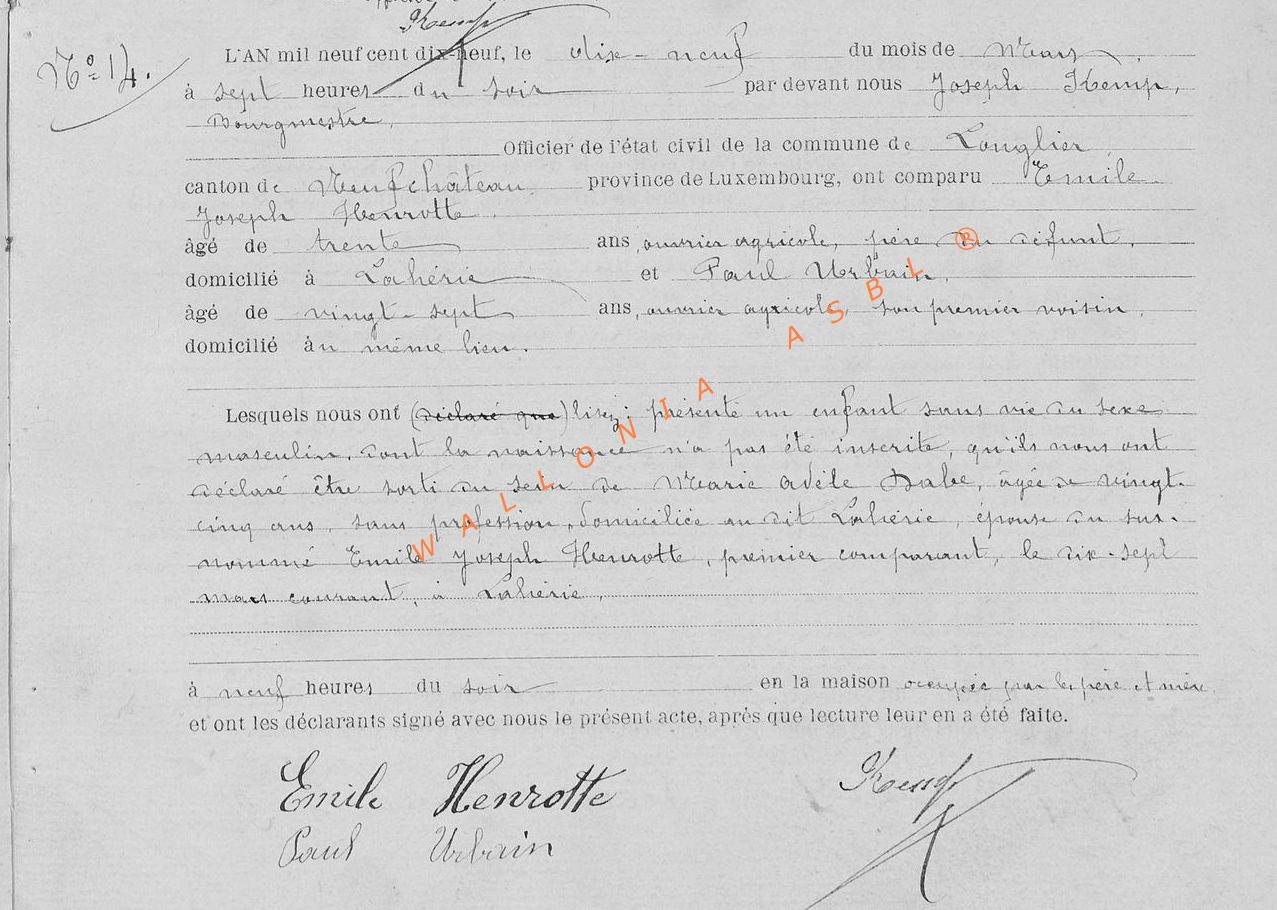 Kemp
N° 14.
L'AN mil neuf cent dix-neuf, le dix-neuf du mois de Mars,
à sept heures du soir par devant nous Joseph Kemp,
Bourgmestre,
Officier de l'état civil de la commune de Longlier,
canton de Neufchâteau province de Luxembourg, ont comparu Emile
Joseph Henrotte,
âgé de trente ans, ouvrier agricole, père du défunt,
domicilié à Lahérie et Paul Urbain,
âgé de vingt-sept ans, ouvrier agricole, son premier voisin,
domicilié au même lieu.
Lesquels nous ont (déclaré que) lisez: présenté un enfant sans vie du sexe
masculin, dont la naissance n'a pas été inscrite, qu'ils nous ont
déclaré être sorti du sein de Marie Adèle Dabe, âgée de vingt-
cinq ans, sans profession, domiciliée au dit Lahérie, épouse du sus-
nommé Emile Joseph Henrotte, premier comparant, le dix-sept
mars courant, à Lahérie,
à neuf heures du soir en la maison occupée par les père et mère
et ont les déclarants signé avec nous le présent acte, après que lecture leur en a été faite.
Emile Henrotte Kemp
Paul Urbain
WALLONIA ASBL ®